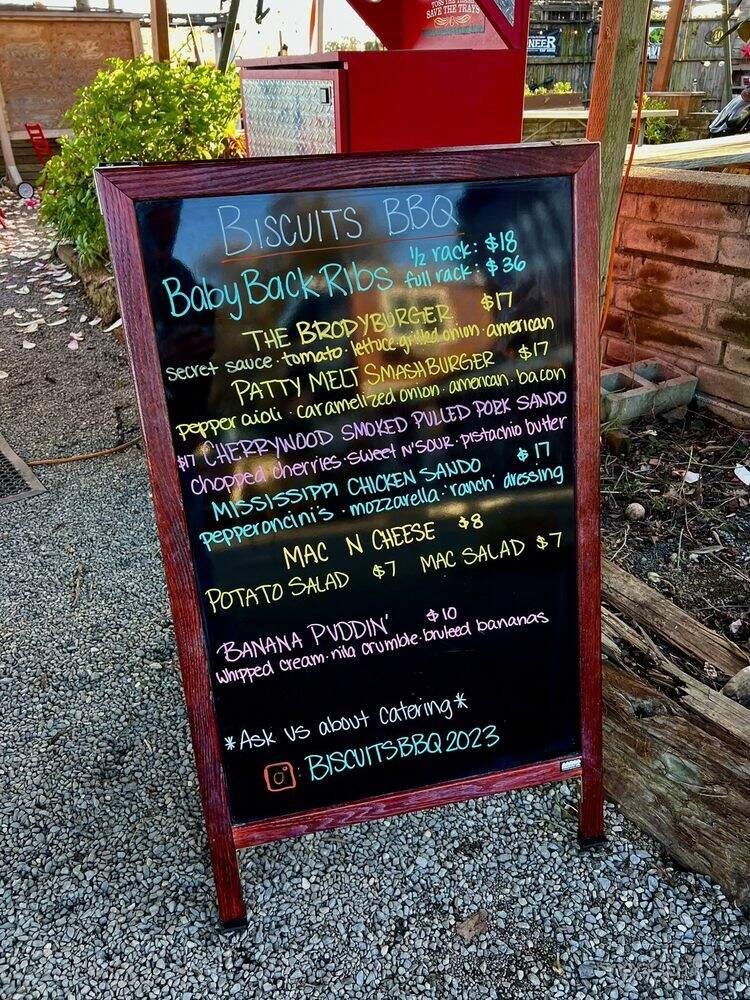 SAVE THE TRAYS
NEER
BISCUITS BBQ
Baby Back Ribs ½ rack: $18
full rack: $36
THE BRODYBURGER $17
secret sauce · tomato · lettuce grilled onion · american
PATTY MELT SMASHBURGER $17
pepper aioli · caramelized onion · american · bacon
$17 CHERRYWOOD SMOKED PULLED PORK SANDO
chopped cherries · sweet N'SOUR · pistachio butter
MISSISSIPPI CHICKEN SANDO $17
pepperoncini's · mozzarella · 'ranch' dressing
MAC N CHEESE $8
POTATO SALAD $7 MAC SALAD $7
BANANA PUDDIN' $10
whipped cream · nila crumble · bruleed bananas
*Ask us about catering*
: BISCUITSBBQ2023